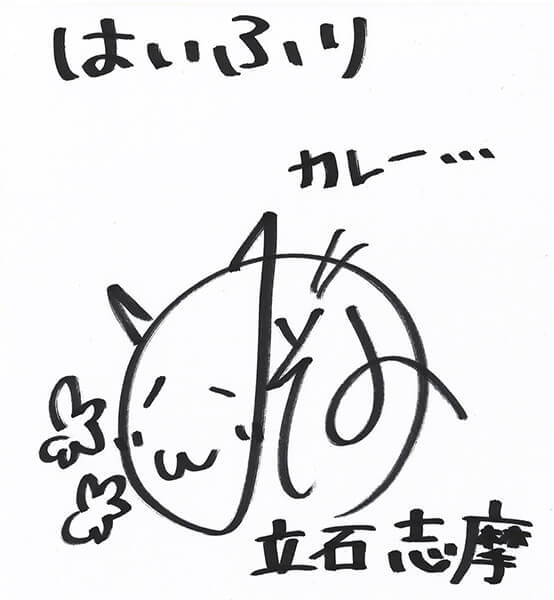 はいふり
カレー…
立石志摩